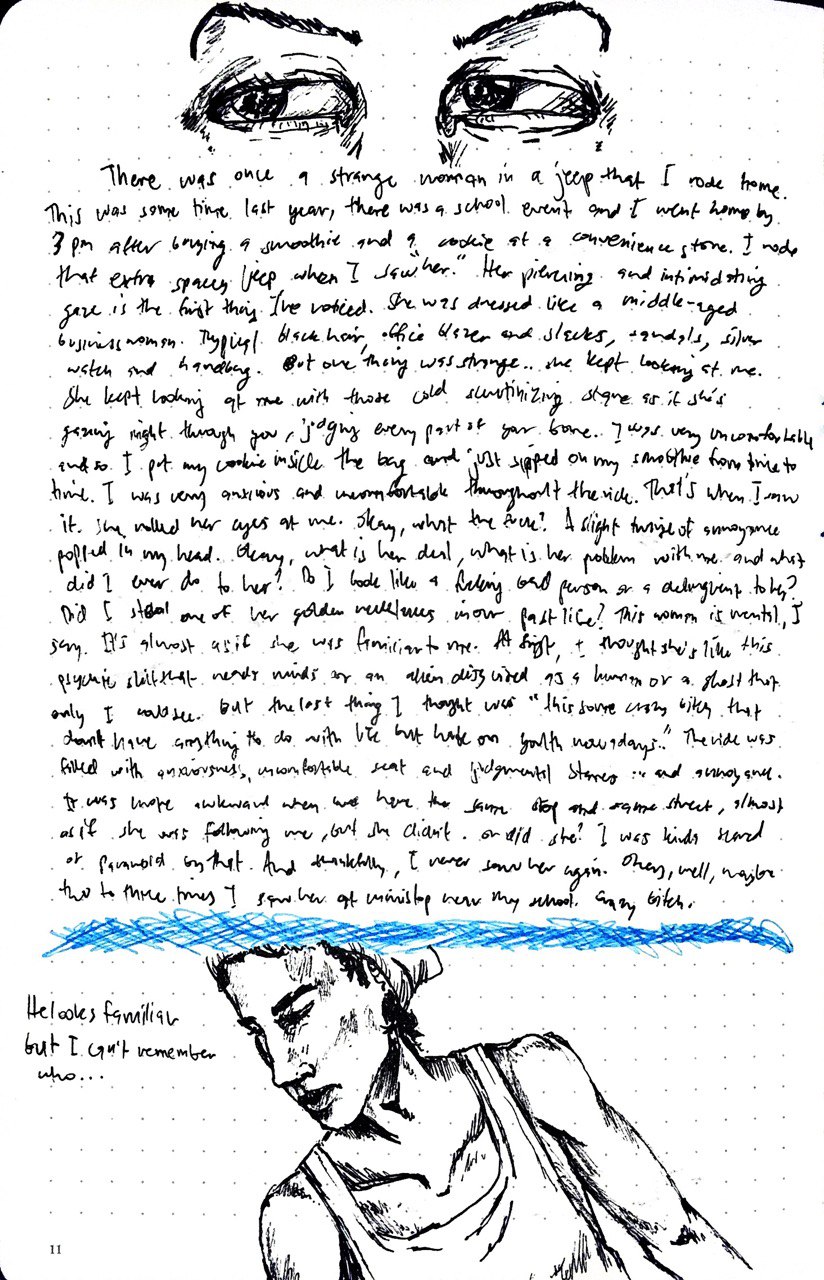 There was once a strange woman in a jeep that I rode home.
This was some time last year, there was a school event and I went home by
3 pm after buying a smoothie and a cookie at a convenience store. I rode
that extra spacey jeep when I saw "her." Her piercing and intimidating
gaze is the first thing I've noticed. She was dressed like a middle-aged
businesswoman. Typical black hair, office blazer and slacks, sandals, silver
watch and handbag. But one thing was strange.. she kept looking at me.
She kept looking at me with those cold scrutinizing stare as if she's
gazing right through you, judging every part of your bone. I was very uncomfortable
and so I put my cookie inside the bag and just sipped on my smoothie from time to
time. I was very anxious and uncomfortable throughout the ride. That's when I saw
it. She rolled her eyes at me. Okay, what the fuck? A slight twinge of annoyance
popped in my head. Okay, what is her deal, what is her problem with me and what
did I ever do to her? Do I look like a fucking bad person or a delinquent to her?
Did I steal one of her golden necklaces in our past life? This woman is mental, I
say. It's almost as if she was familiar to me. At first, I thought she's like this
psychic shit that reads minds or an alien disguised as a human or a ghost that
only I could see. But the last thing I thought was "this some crazy bitch that
don't have anything to do with life but hate on youth nowadays.." The ride was
filled with anxiousness, uncomfortable seat and judgmental stares .. and annoyance.
It was more awkward when we have the same stop and same street, almost
as if she was following me, but she didn't. or did she? I was kinda scared
or paranoid on that. And thankfully, I never saw her again. Okay, well, maybe
two to three times I saw her at ministop near my school. Crazy bitch.
He looks familiar
but I can't remember
who...
11